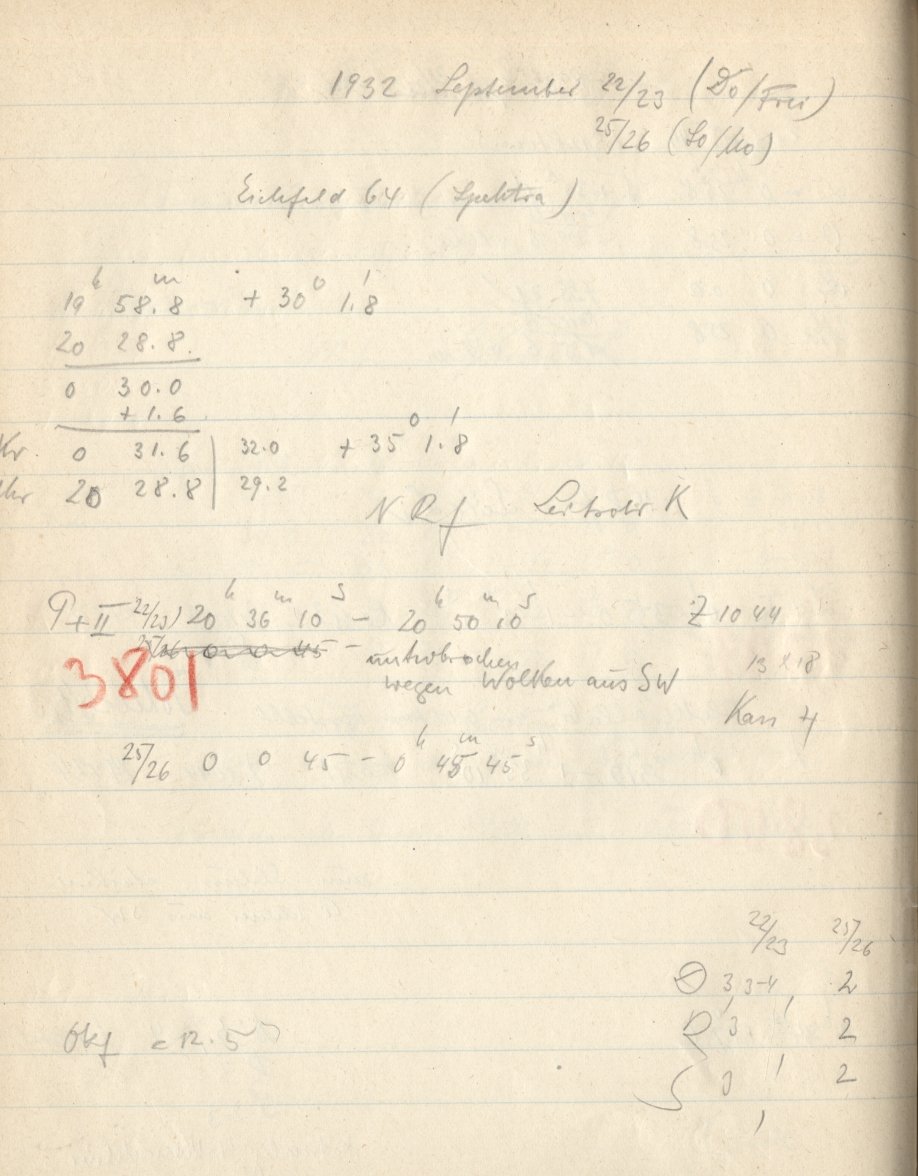 1932 September 22/23 (Do/Frei)
25/26 (So/Mo)
Eichfeld 64 (Spektra)
19h 58.8m + 30° 1.8'
20 28.8
0 30.0
+ 1.6
0 31.6 | 32.0 + 35° 1.8'
Uhr 20 28.8 | 29.2
N R f Leitrohr K
P + II 22/23) 20h 36m 10s - 20h 50m 10s Z 1044
25/26 0 0 45 - unterbrochen 13 x 18
3801 wegen Wolken aus SW
Kass 4
25/26 0 0 45 - 0h 45m 45s
22/23 25/26
3, 3-4, 2
R 3 2
Okf = 12.5
S 2